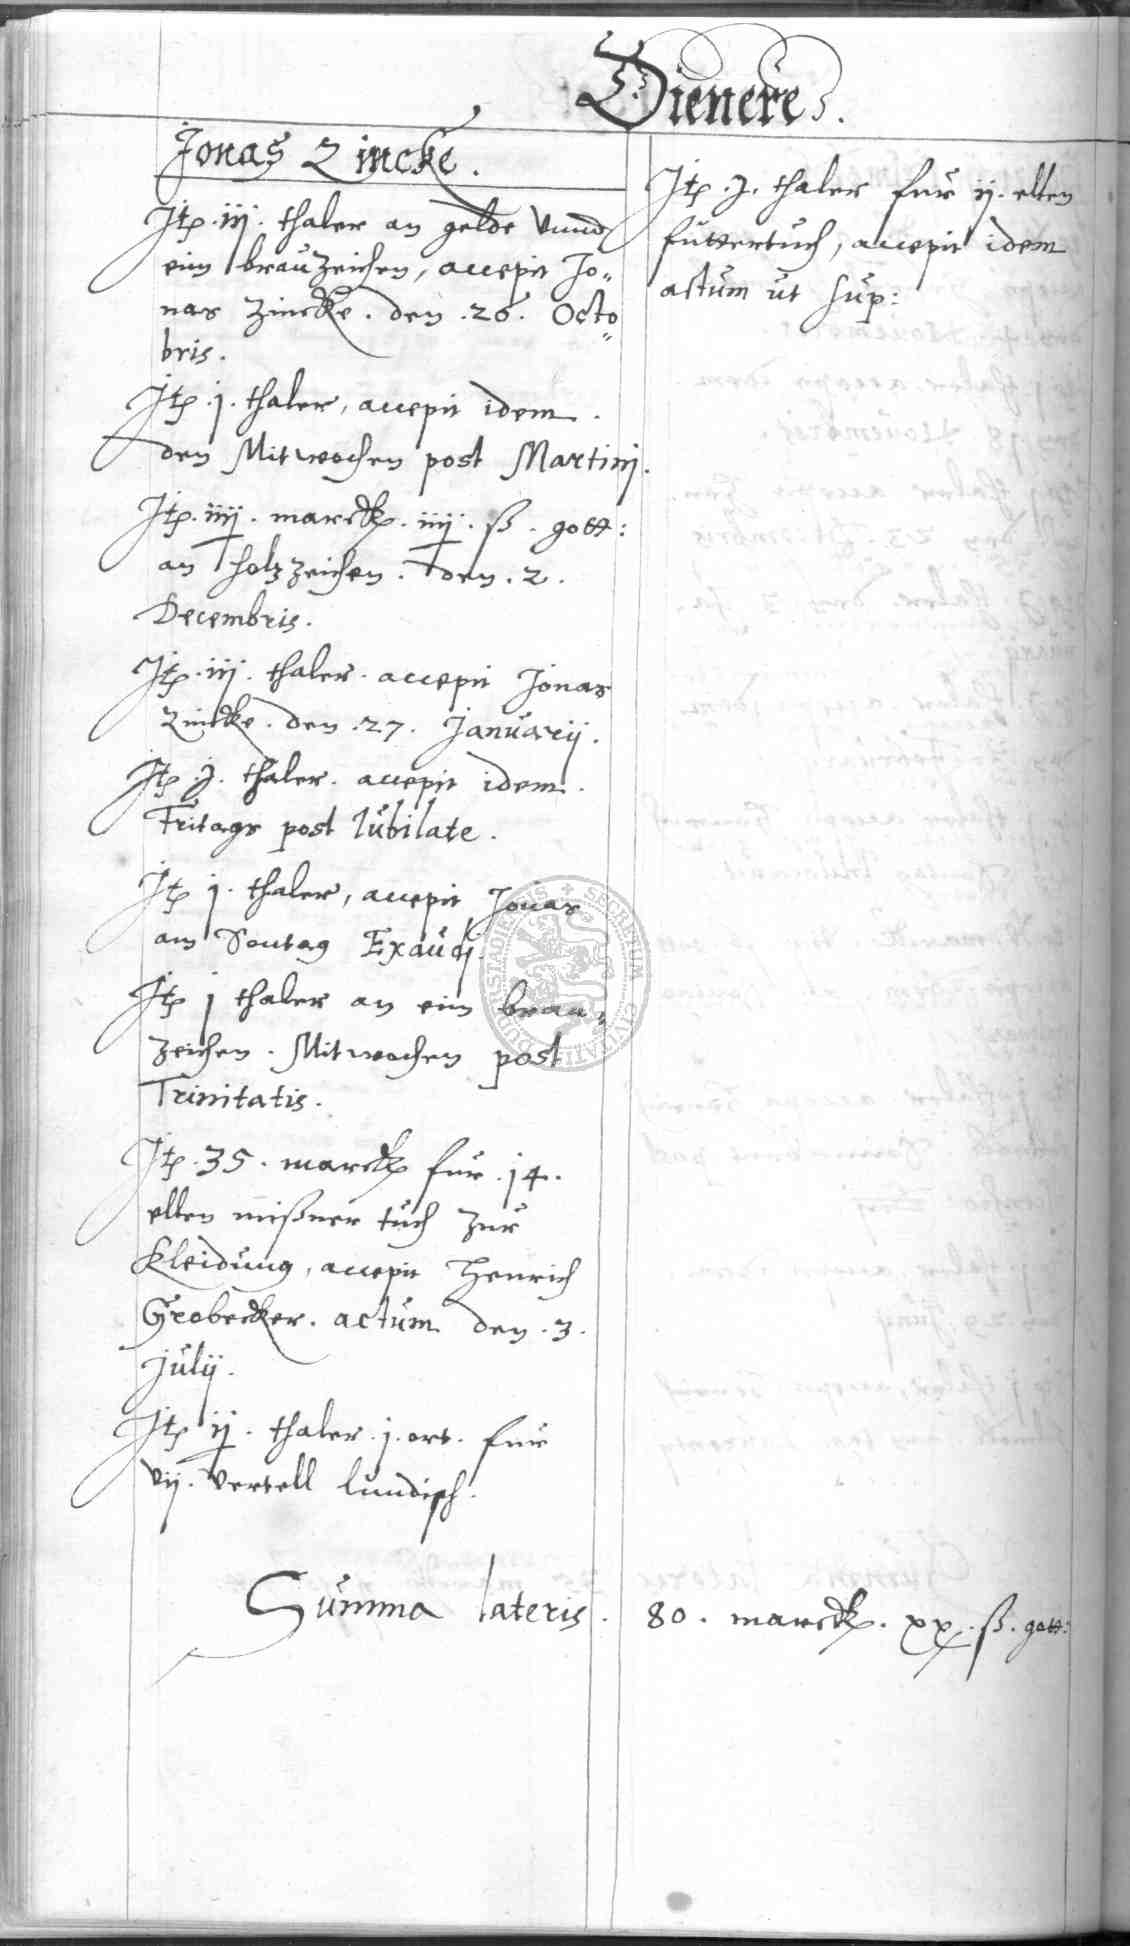 Dienere.
Jonas Zincke.
Jtem .iij. thaler an gelde vnnd
eim brauzeichen, accepit Jo„
nas Zincke. den .26. Octo„
bris.
Jtem .j. thaler, accepit idem.
den Mitwochen post Martinj.
Jtem .iiij. marck .iiij. ß. gott:
an holzzeichen. den .2.
Decembris.
Jtem .iij. thaler. accepit Jonas
Zincke. den .27. Januarij.
Jtem .j. thaler. accepit idem.
Fritags post Iubilate.
Jtem j. thaler, accepit Jonas
am Sontag Exaudj.
Jtem j thaler an eim brau„
zeichen. Mitwochen post
Trinitatis.
Jtem .35. marck für .14.
ellen mißner tuch zur
Kleidung, accepit Henrich
Grobecker. actum den .3.
Julij.
Jtem ij. thaler .j. ort. für
vij. vertell lundisch.
Jtem .j. thaler für ij. ellen
futtertuch, accepit idem
actum ut sup:
Summa lateris. 80. marck. xx. ß. gott:
SECRETUM CIVITATIS DUDERSTADIENSIS